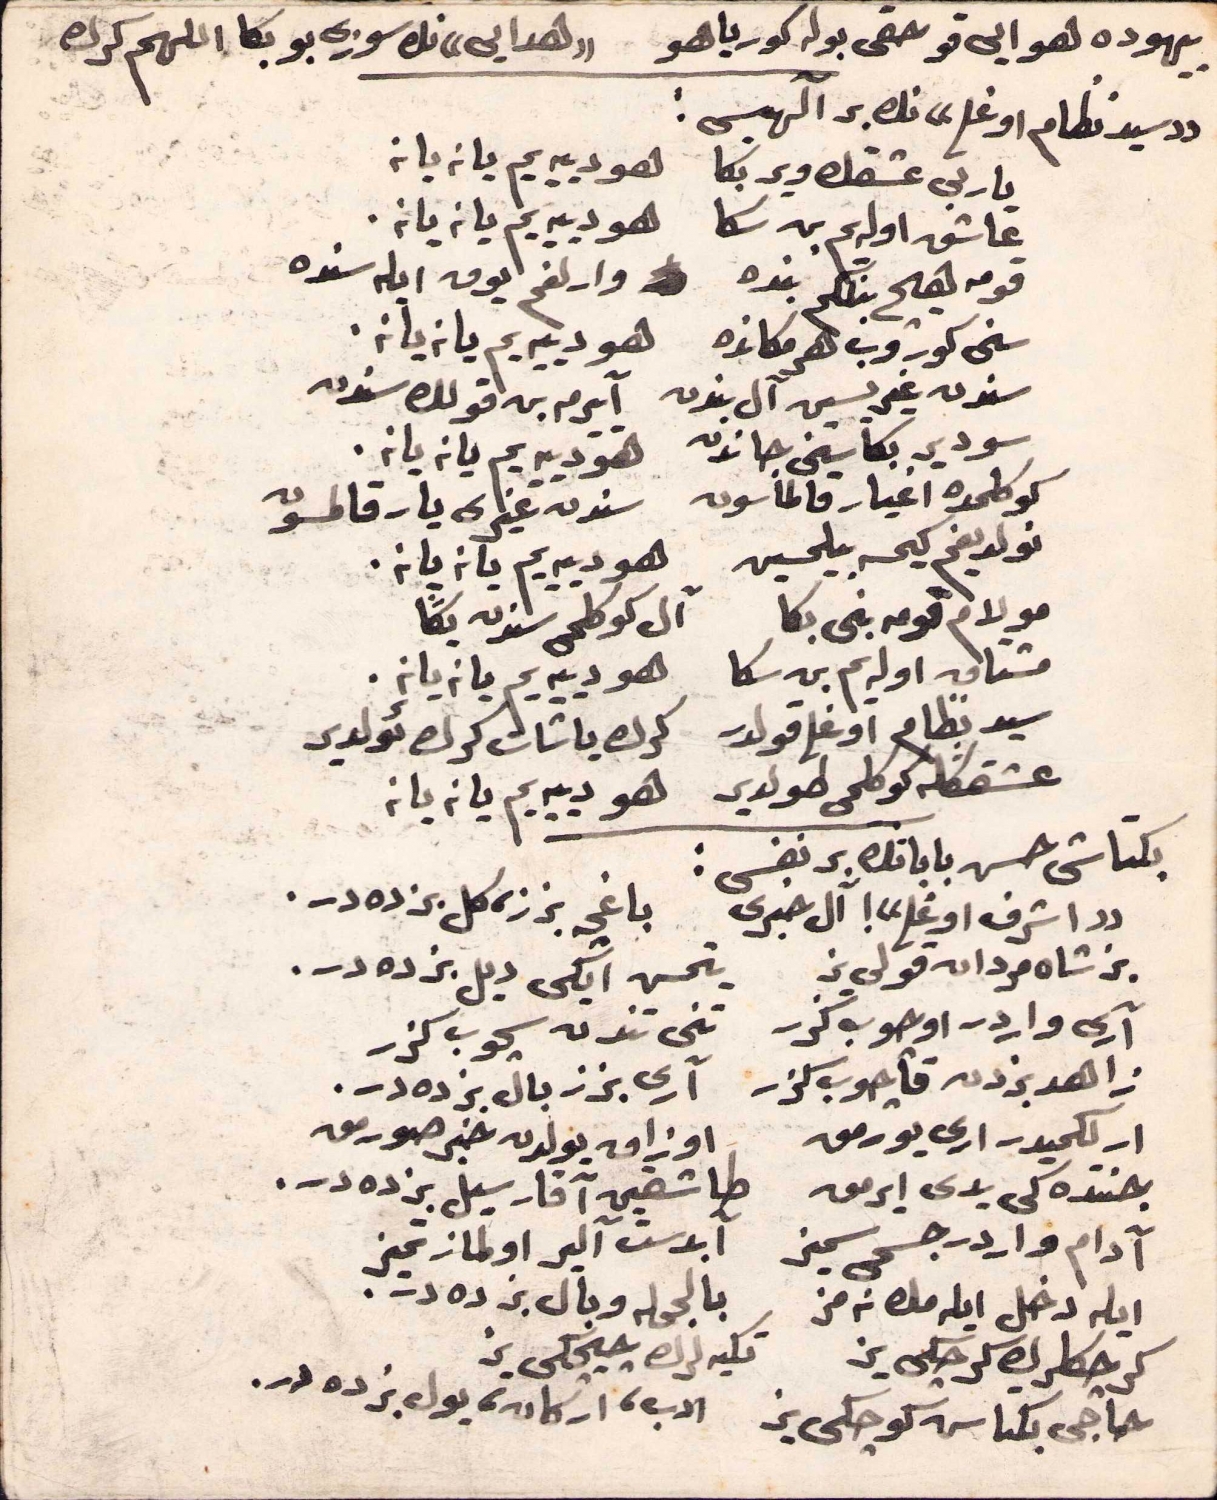 بیهوده هوایی قو حقی بوله کور یا هو «هدایی» نڭ سوزی بو بڭا اللهم كرك
«سید نظام اوغلی» نڭ بر آلهیسی :
یا ربی عشقڭ ویر بڭا هو دییه‌یم یانه یانه
عاشق اوله‌یم بن سڭا هو دییه‌یم یانه یانه .
قومه هیچ بنلكم بنده وارلغم یوق ایله سنده
سنی كوروب هر مكانده هو دییه‌یم یانه یانه .
سندن غیریسین آل بندن آیرمه بن قولڭ سندن
سودیر بڭا سنی جاندن هو دییه‌یم یانه یانه .
كوڭلمده اغیار قالماسون سندن غیری یار قالمسون
نولدیغم كیمسه بیلمسین هو دییه‌یم یانه یانه .
مولام قومه بنی بڭا آل كوڭلمی سندن یڭا
مشتاق اوله‌یم بن سڭا هو دییه‌یم یانه یانه .
سید نظام اوغلی قولدر كرك یاشات كرك ئولدیر
عشقڭله كوڭلمی طولدیر هو دییه‌یم یانه یانه
بكتاشی حسن بابانڭ بر نفسی :
«اشرف اوغلی»! آل خبری باغچه بزز، كل بزده در .
بز شاه مردان قولی یز یتمش ایكی دیل بزده در .
آری واردر اوچوب كزر تنی تندن سچوب كزر
زاهد بزدن قاچوب كزر آری بزز بال بزده در .
ارلكمیدر اری یورمق اوزاق یولدن خبر صورمق
جنتده كی یدی ایرمق طاشقین آقار سیل بزده در .
آدم واردر جسمی سمیز آبدست آلیر اولماز تمیز
ایله دخل ایله‌مك نه مز بالجمله وبال بزده در .
كرچكلرڭ كرچكی یز تكیه‌لرڭ چیچكی یز
حاجی بكتاش كوچكی یز ادب، اركان، یول بزده در .